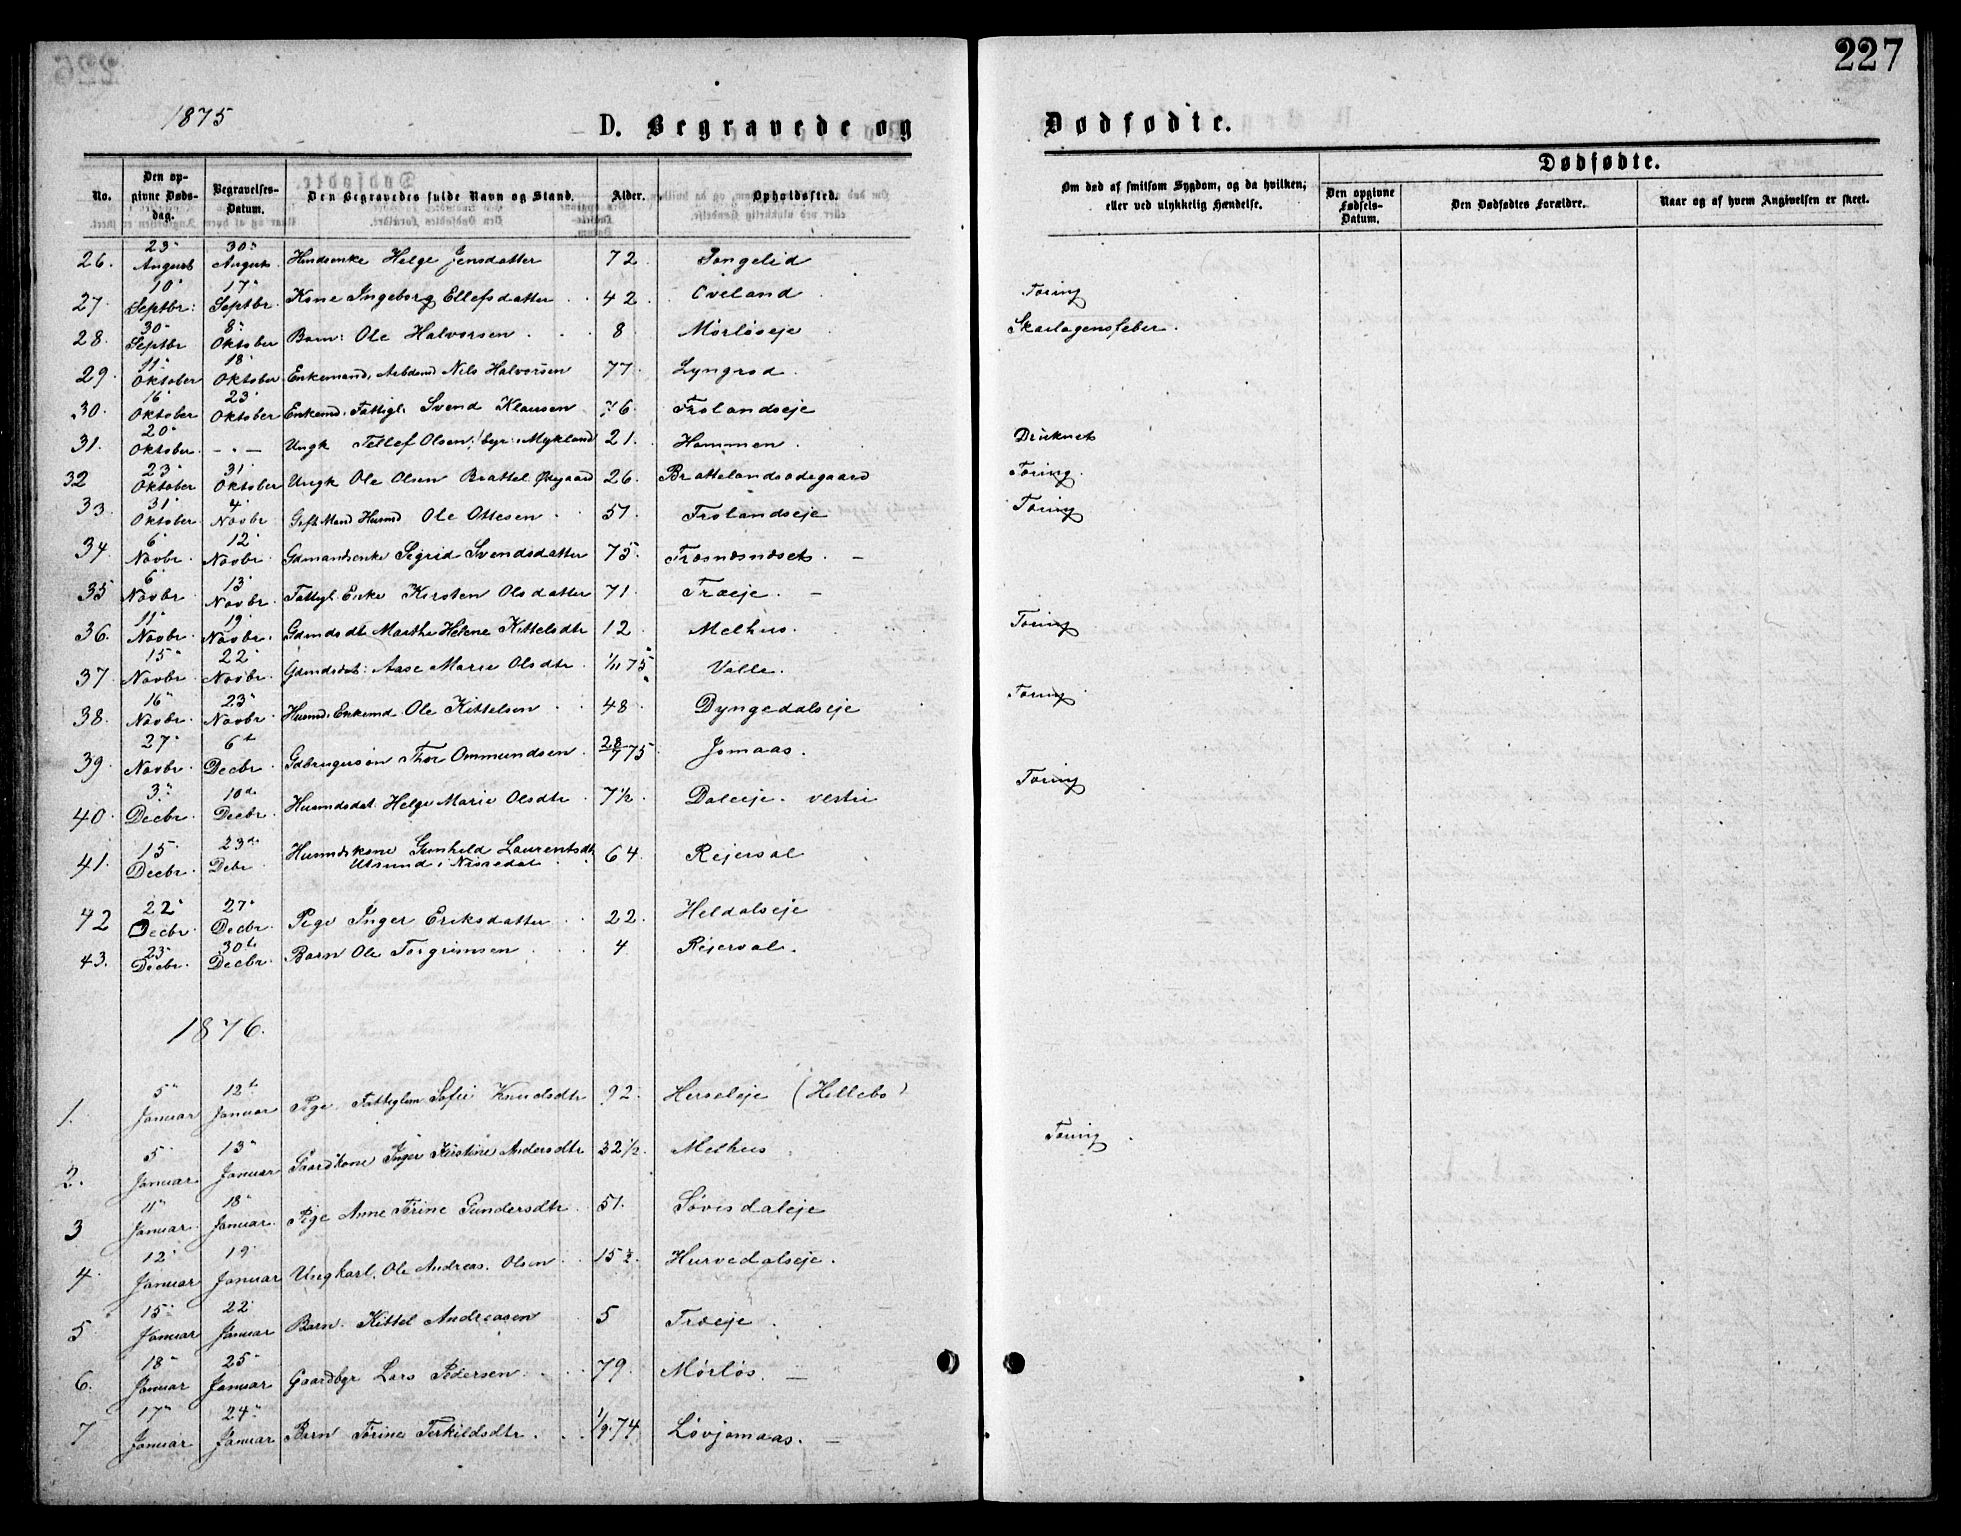 227
1875
D. Begravede og Dødfødte.
No. | Den opgivne Dødsdag. | Begravelses-Datum. | Den Begravedes fulde Navn og Stand. | Alder. | Opholdssted. | Om død af smitsom Sygdom, og da hvilken; eller ved ulykkelig Hændelse. | Dødfødte. | Den opgivne Fødsels-Datum. | Den Dødfødtes Forældre. | Naar og af hvem Angivelsen er skeet.
26. 23 August 30 August Helge Jensdatter 72. Tongelid
27. 10 Septbr. 17 Septbr. Kone Ingeborg Ellefsdatter 42. Oveland Tæring
28. 30 Septbr 8 Oktober Barn: Ole Halvorsen 8 Mørløseje Skarlagensfeber.
29. 11 Oktober 18 Oktober Enkemand, Nils Halvorsen 77. Lyngrod
30. 16 Oktober 23 Oktober Enkemd. Fattigl. Svend Klausen 76 Frolandseje
31. 20 Oktober - " - Ungk Tellef Olsen, Mykland 21. Hammen Druknet
32 23 Oktober 31 Oktober Ungk Ole Olsen Brattel. Ødegaard 26. Brattelandsødegaard Tæring.
33. 31 Oktober 4 Novbr Gift Mand Husmd Ole Ottesen 51. Frolandseje Tæring
34. 6 Novbr. 12 Novbr. Gdmandsenke Sigrid Svendsdatter 75.
35 6 Novbr. 13 Novbr. Fattigl. Enke Kirsten Olsdatter 71. Træeje.
36. 11 Novbr. 19 Novbr. Gdmdsdt. Marthe Helene Kittelsdtr 12. Melhus. Tæring
37. 15 Novbr. 22 Novbr. Gdmdsdat: Aase Marie Olsdtr. 1/11 75 Valle.
38. 16 Novbr. 23 Novbr. Husmd. Enkemd. Ole Kittelsen 48 Dyngedalseje Tæring
39. 27 Novbr. 6te Decbr. Gdbrugersøn Thor Ommundsen 28/7 75 Jomaas.
40. 3. Decbr. 10de Decbr. Husmdsdat. Helge Marie Olsdtr. 7½. Daleeje. vestre Tæring
41. 15 Decbr. 23de Debr. Husmdskone Gunhild Laurentsdtr
Utsund i Nissedal 64. Rejersøl
42 22 Decbr. 27 Decbr. Pige Inger Eriksdatter 22. Heldalseje
43. 23 Decbr. 30te Decbr. Barn Ole Torgrimsen 4 Rejersøl.
1876.
1. 5 Januar 12te Januar Pige. Fattiglem Sofie Knudsdtr 92. Herseleje (Hillebo)
2. 5 Januar 13 Januar Gaardkone Inger Kristine Andersdtr 32½. Melhus Tæring
3 11 Januar. 18 Januar. Pige Anne Tørine Gundersdtr. 51. Løvisdaleje
4. 12 Januar 19 Januar Ungkarl. Ole Andreas. Olsen 15½. Hurvedalseje.
5. 15 Januar 22 Januar Barn. Kittel Andreasen 5 Træeje.
6. 18 Januar 25 Januar Gaardbgr Lars Pedersen. 79. Mørløs.
7 17 Januar 24 Januar Barn Tørine Terkildsdtr. 1/9 74 Løvjomaas.